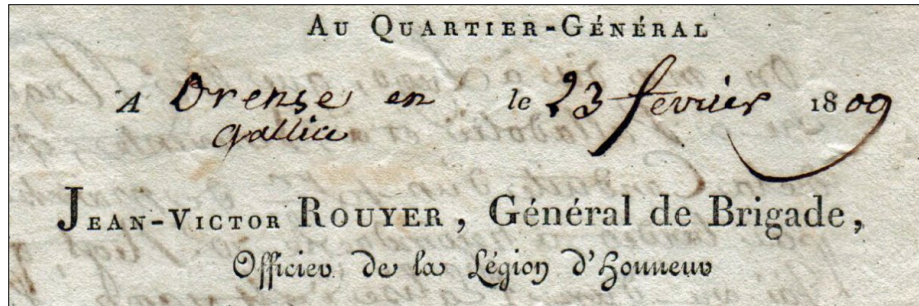 AU QUARTIER-GÉNÉRAL
A Orense en le 23 fevrier 1809
Gallice
JEAN-VICTOR ROUYER, Général de Brigade,
Officier de la Légion d'Honneur